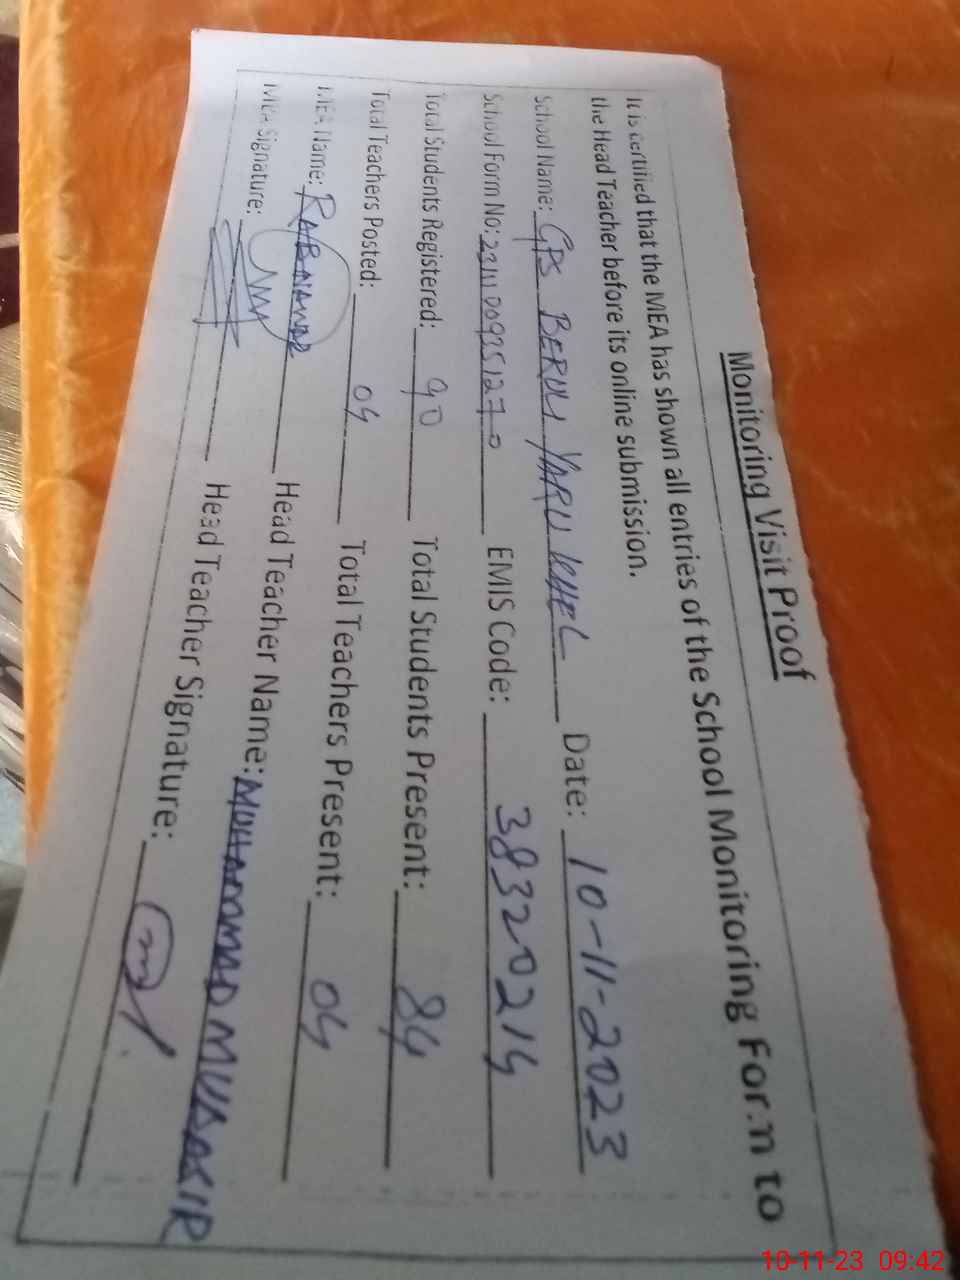 Monitoring Visit Proof
It is certified that the MEA has shown all entries of the School Monitoring Form to
the Head Teacher before its online submission.
School Name: GPS BERULI YARU KHEL Date: 10-11-2023
School Form No: EMIS Code: 38320214
Total Students Registered: 90 Total Students Present: 84
Total Teachers Posted: 04 Total Teachers Present: 04
MEA Name: Head Teacher Name: MUHAMMAD MUDASIR
MEA Signature: Head Teacher Signature:
10-11-23 09:42